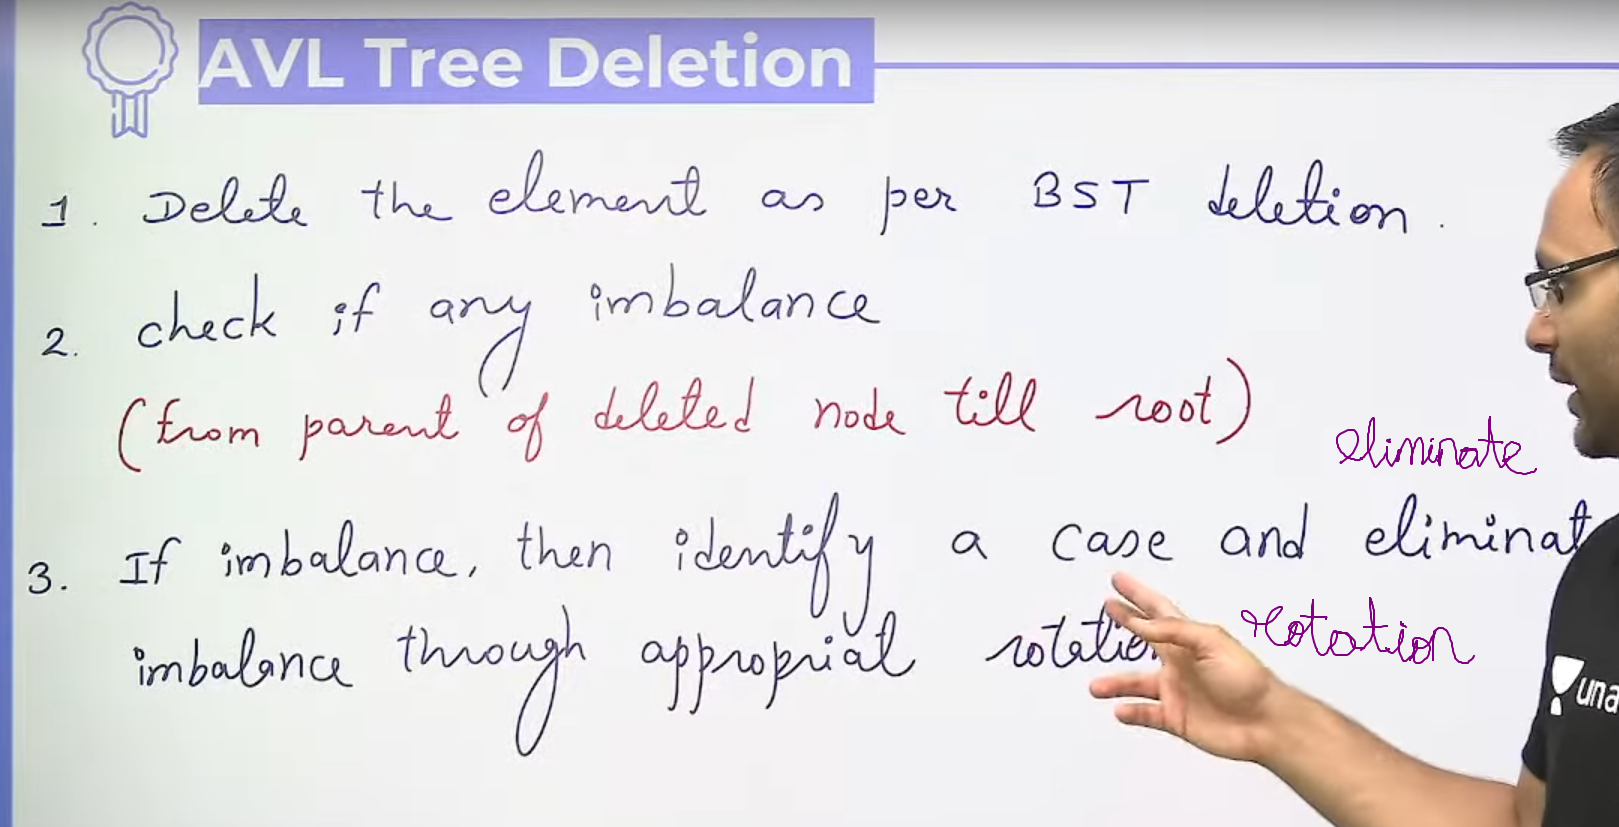 AVL Tree Deletion
1. Delete the element as per BST deletion.
2. check if any imbalance
(from parent of deleted node till root)
eliminate
3. If imbalance, then identify a case and eliminat
imbalance through appropriat rotation
rotation
una